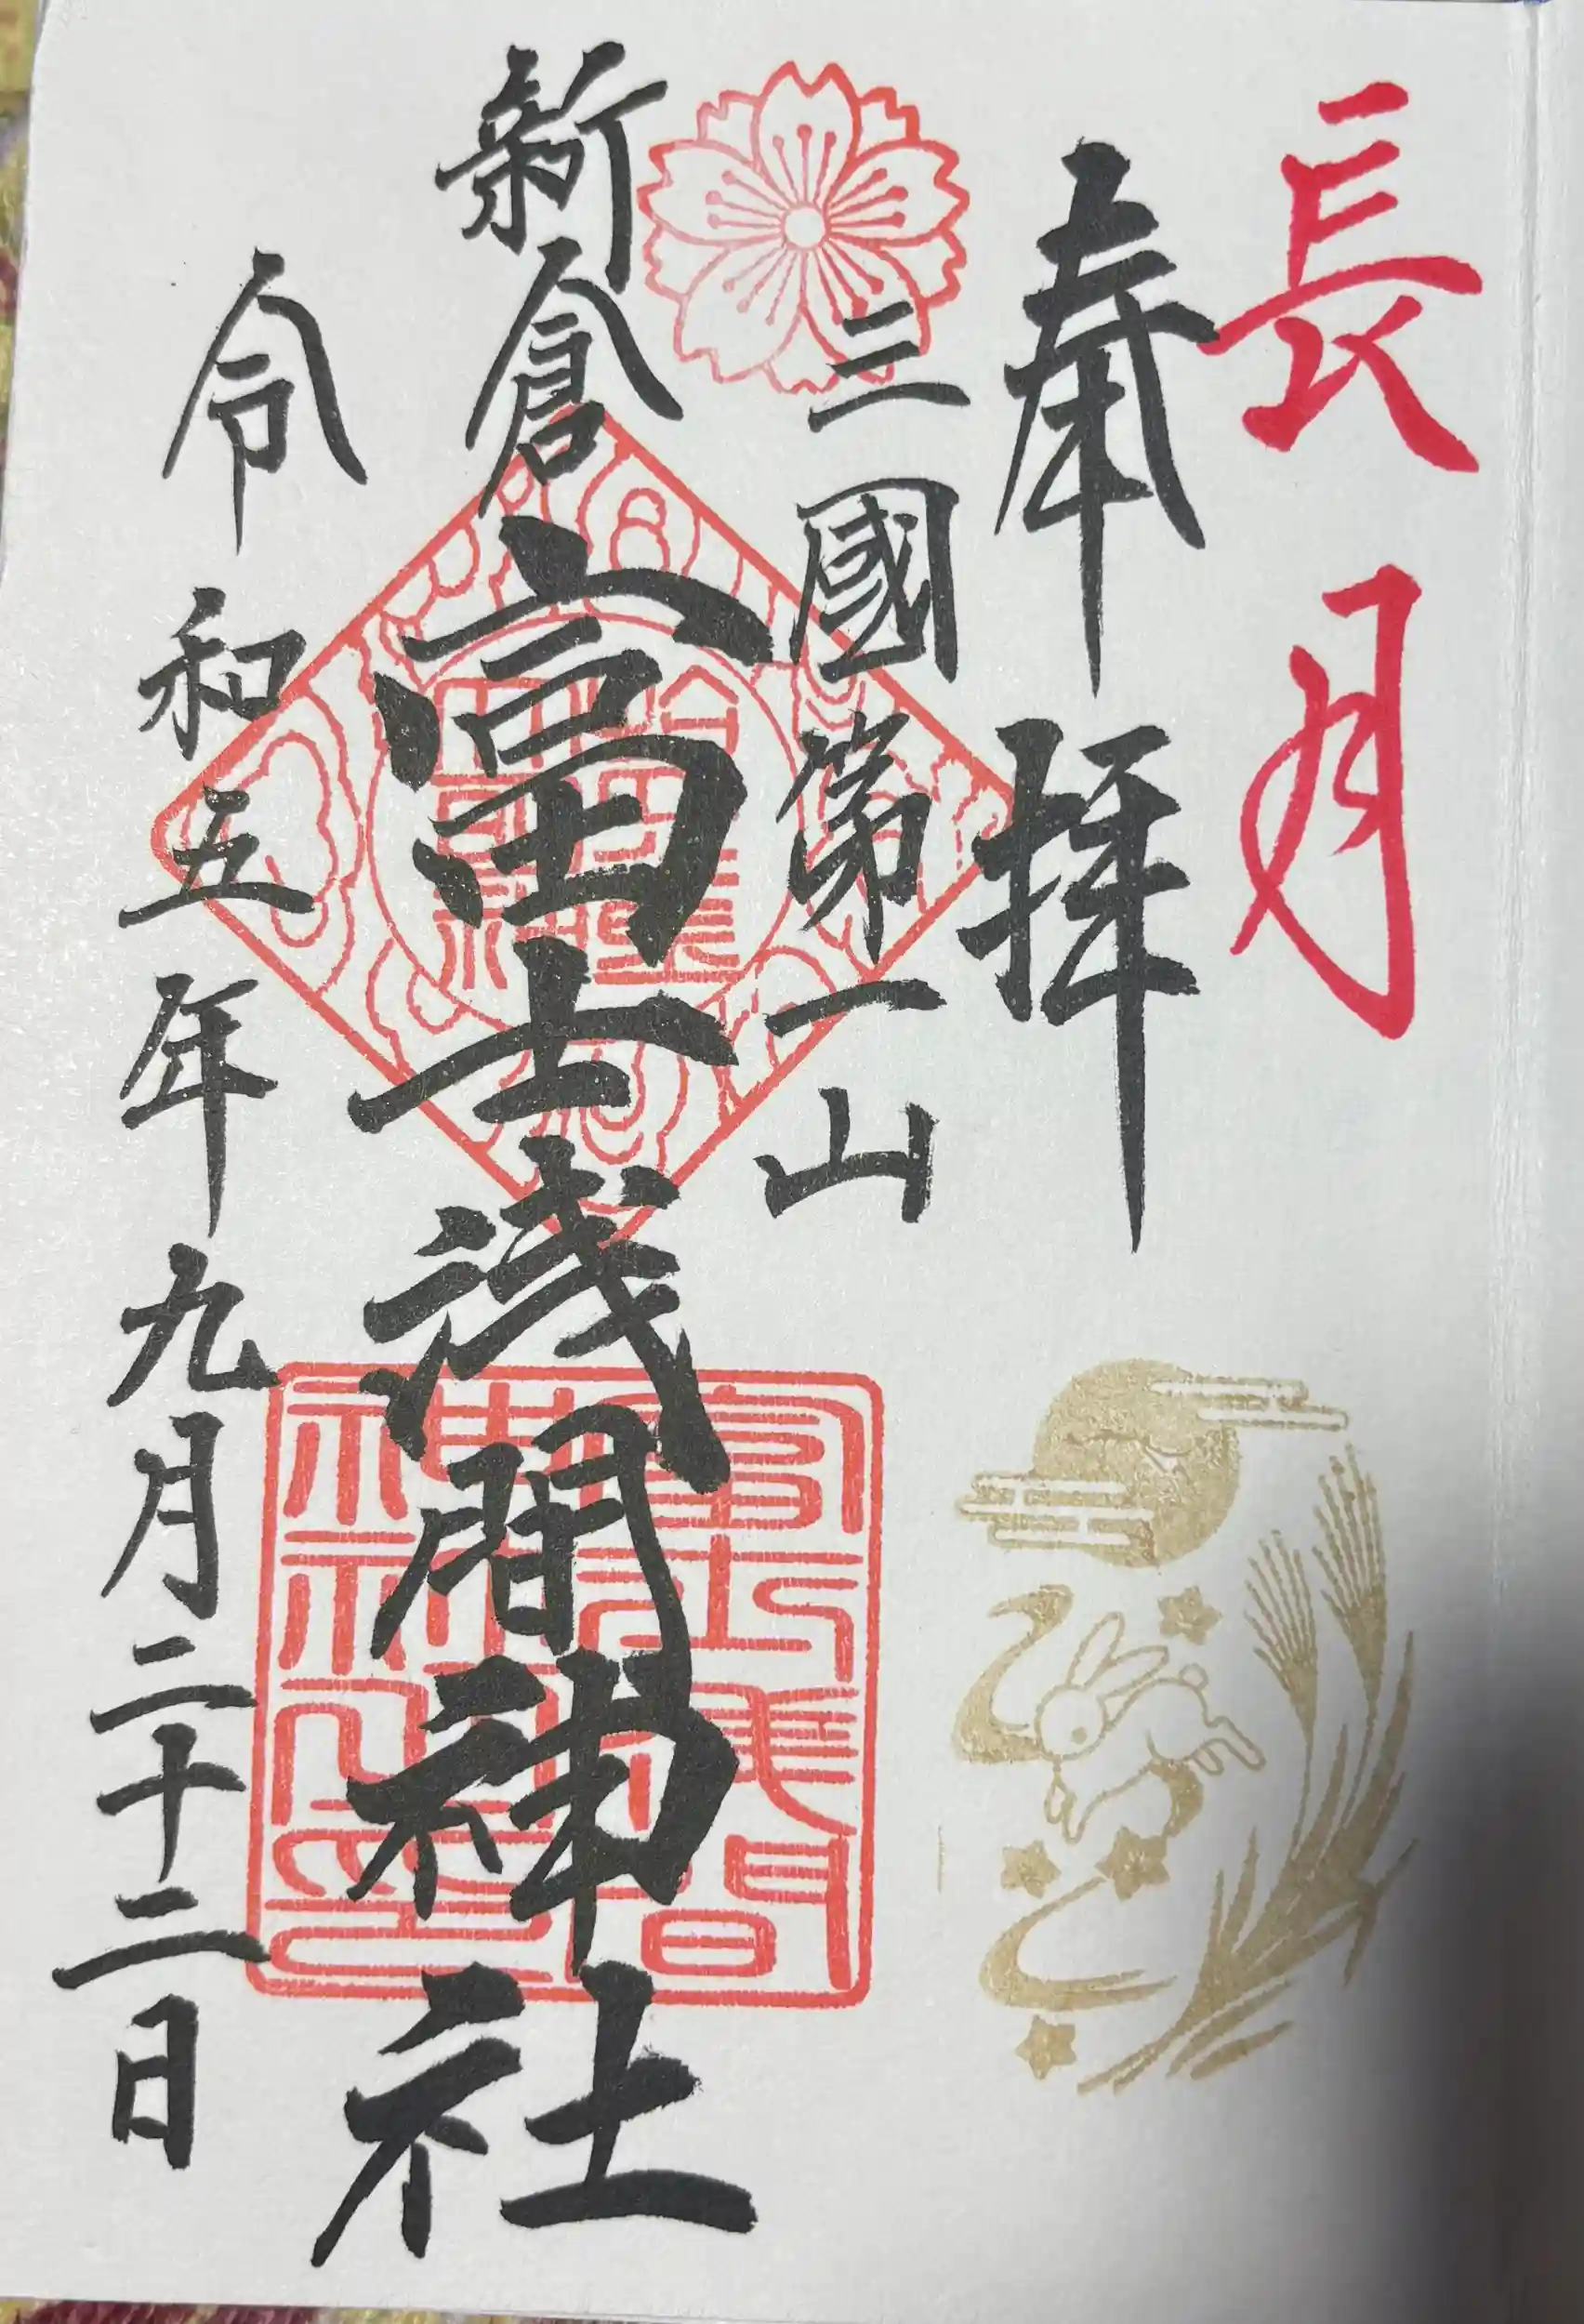 長月
奉拝
三國第一山
新倉富士浅間神社
令和五年九月二十二日